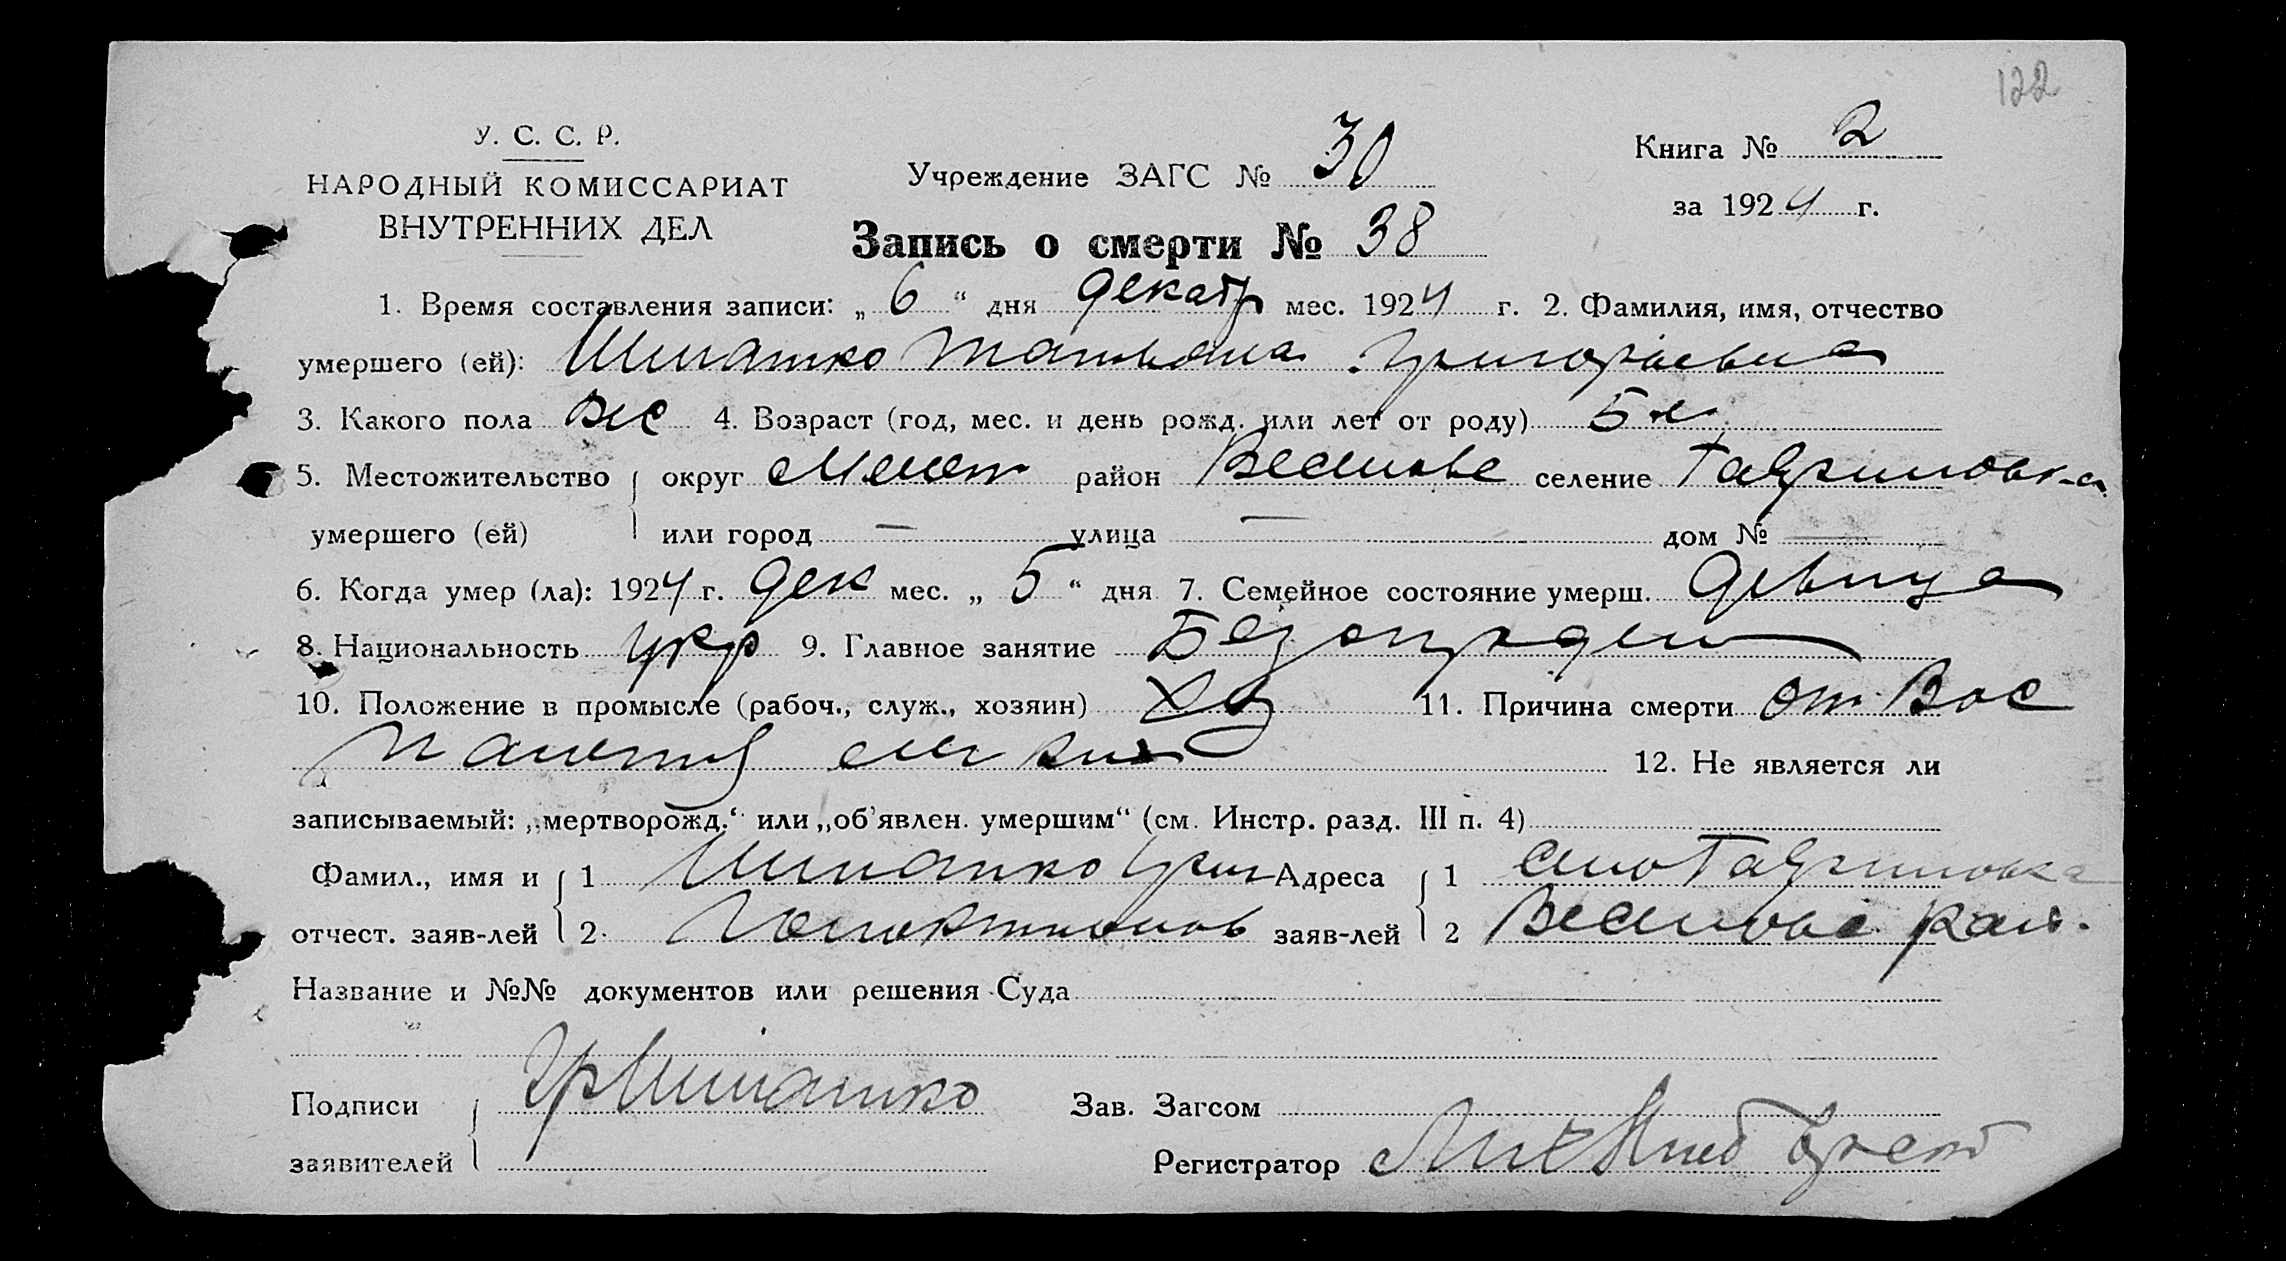 122
У. С. С. Р.
НАРОДНЫЙ КОМИССАРИАТ
ВНУТРЕННИХ ДЕЛ
Учреждение ЗАГС № 30
Книга № 2
за 1924 г.
Запись о смерти № 38
1. Время составления записи: „ 6 “ дня декабр мес. 1924 г. 2. Фамилия, имя, отчество
умершего (ей): Шматко Татьяна Григорьевна
3. Какого пола жс 4. Возраст (год, мес. и день рожд. или лет от роду) 5 л
5. Местожительство округ Мелит район Веселовс селение Гавриловка
умершего (ей) или город — улица — дом №
6. Когда умер (ла): 1924 г. дек мес. „ 5 “ дня 7. Семейное состояние умерш. девица
8. Национальность укр 9. Главное занятие
10. Положение в промысле (рабоч., служ., хозяин) 11. Причина смерти от Вос
12. Не является ли
записываемый: „мертворожд.“ или „об'явлен. умершим“ (см. Инстр. разд. III п. 4)
Фамил., имя и 1 Шматко Григ Адреса 1 село Гавриловка
отчест. заяв-лей 2 заяв-лей 2 Веселовс рай.
Название и №№ документов или решения Суда
Подписи Гр Шматко Зав. Загсом
заявителей Регистратор